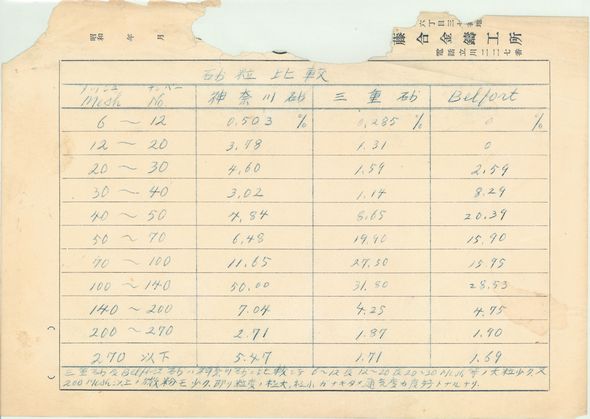 六丁目三十
藤合金鑄工所
電話立川二二七番
昭和 年 月
砂粒比較
メッシュ ナンバー
Mesh No. 神奈川砂 三重砂 Belfort
6 ~ 12 0.503 % 0.285 % 0 %
12 ~ 20 3.78 1.31 0
20 ~ 30 4.60 1.59 2.59
30 ~ 40 3.02 1.14 8.29
40 ~ 50 4.84 8.65 20.39
50 ~ 70 6.48 19.90 15.90
70 ~ 100 11.65 27.50 15.95
100 ~ 140 50.00 31.80 28.53
140 ~ 200 7.04 4.25 4.75
200 ~ 270 2.71 1.87 1.90
270 以下 5.47 1.71 1.69
三重砂及Belfort砂 神奈川砂 比較 6~12及12~20及20~30 Mesh等ノ大粒少ク又
200 Mesh以上ノ微粉モ少ク、即リ粒度ノ粒大、粒小、ガナキタメ通気度ガ良好トナルナリ、